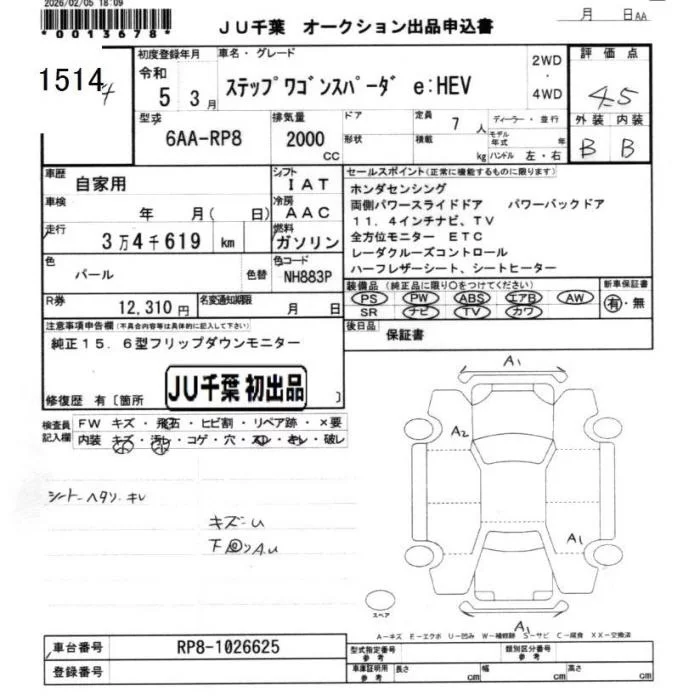 2026/02/05 18:09
*0013678*
JU千葉 オークション出品申込書
月 日AA
1514
初度登録年月
令和
5 3月
車名・グレード
ステップワゴンスパーダ e:HEV
2WD
・
4WD
評価点
4.5
型式
6AA-RP8
排気量
2000
CC
ドア
形状
定員
7人
積載
kg
ディーラー・並行
モデル年式 年
ハンドル 左・右
外装 内装
B B
車歴
自家用
シフト
IAT
車検
年 月( 日)
冷房
AAC
走行
3万4千619 km
燃料
ガソリン
色
パール
色替
色コード
NH883P
R券
12,310円
名変通知期限
月 日
セールスポイント(正常に機能するものに限ります)
ホンダセンシング
両側パワースライドドア パワーバックドア
11.4インチナビ、TV
全方位モニター ETC
レーダクルーズコントロール
ハーフレザーシート、シートヒーター
装備品(純正品に限り○をつけてください)
新車保証書
PS PW ABS エアB AW
SR ナビ TV カワ
有・無
後日品
保証書
注意事項申告欄(不具合内容等は具体的に記入して下さい)
純正15.6型フリップダウンモニター
修復歴 有〔箇所 〕
JU千葉 初出品
検査員記入欄
FW キズ・飛石・ヒビ割・リペア跡・×要
内装 キズ・汚レ・コゲ・穴・スレ・キレ・破レ
シートヘタリ・キレ
キズ-U
A1
A2
A1
A1
スペア
A-キズ E-エクボ U-凹み W-補修跡 S-サビ C-腐食 XX-交換済
車台番号
RP8-1026625
登録番号
型式指定番号
参考
類別区分番号
参考
車庫証明用
参考
長さ cm
幅 cm
高さ cm